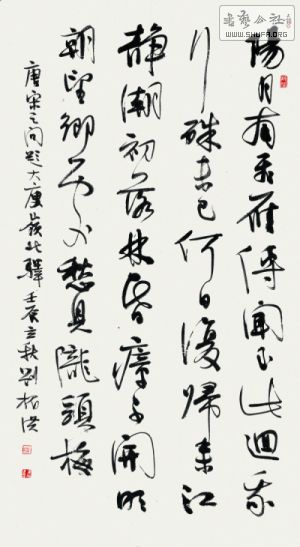 書藝公社
WWW.SHUFA.ORG
陽月南飛雁傳聞至此迴我
行殊未已何日復歸來江
静潮初落林昏瘴不開明
朝望鄉處應見隴頭梅
唐宋之問題大庾嶺北驛 壬辰立秋 劉